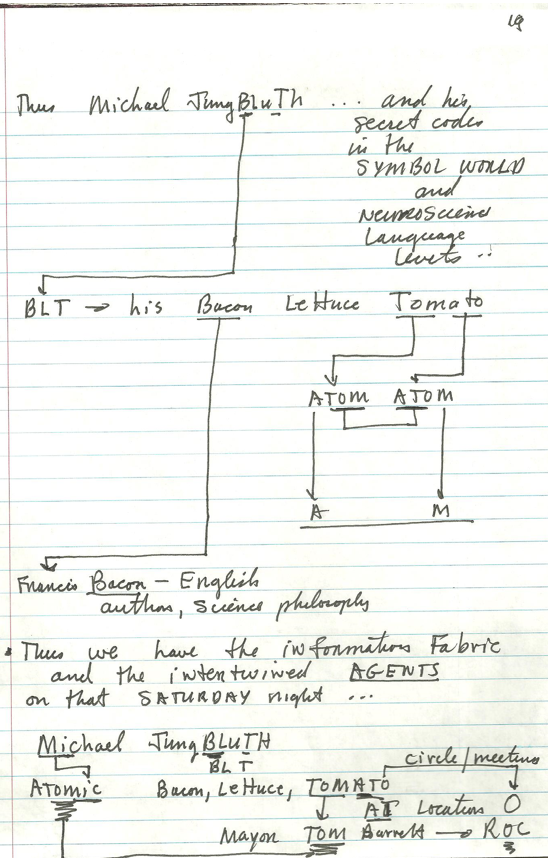 19
Thus Michael JungBLuTh ... and his
secret codes
in the
SYMBOL WORLD
and
Neuroscience
Language
Levels ..
BLT → his Bacon Lettuce Tomato
ATOM ATOM
A M
Francis Bacon - English
author, science philosophy
• Thus we have the information Fabric
and the intertwined AGENTS
on that SATURDAY night ...
Michael JungBLUTH
BLT
circle/meeting
ATOMIC Bacon, Lettuce, TOMATO
AT Location O
Mayor TOM Barrett → ROC